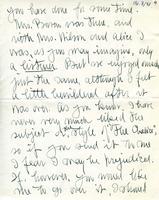 you have done to some time
Mrs. Brown was there, and
with Mrs. Wilson and Alice I
was, as you may imagine, only
a listener. But we enjoyed much
just the same, although I felt
a little humiliated after it
was over. As you know, I have
never very much liked the
subject of style of "The Outlook",
so if you send it to me
I fear I may be prejudiced.
If, however, you would like
me to go over it, I should